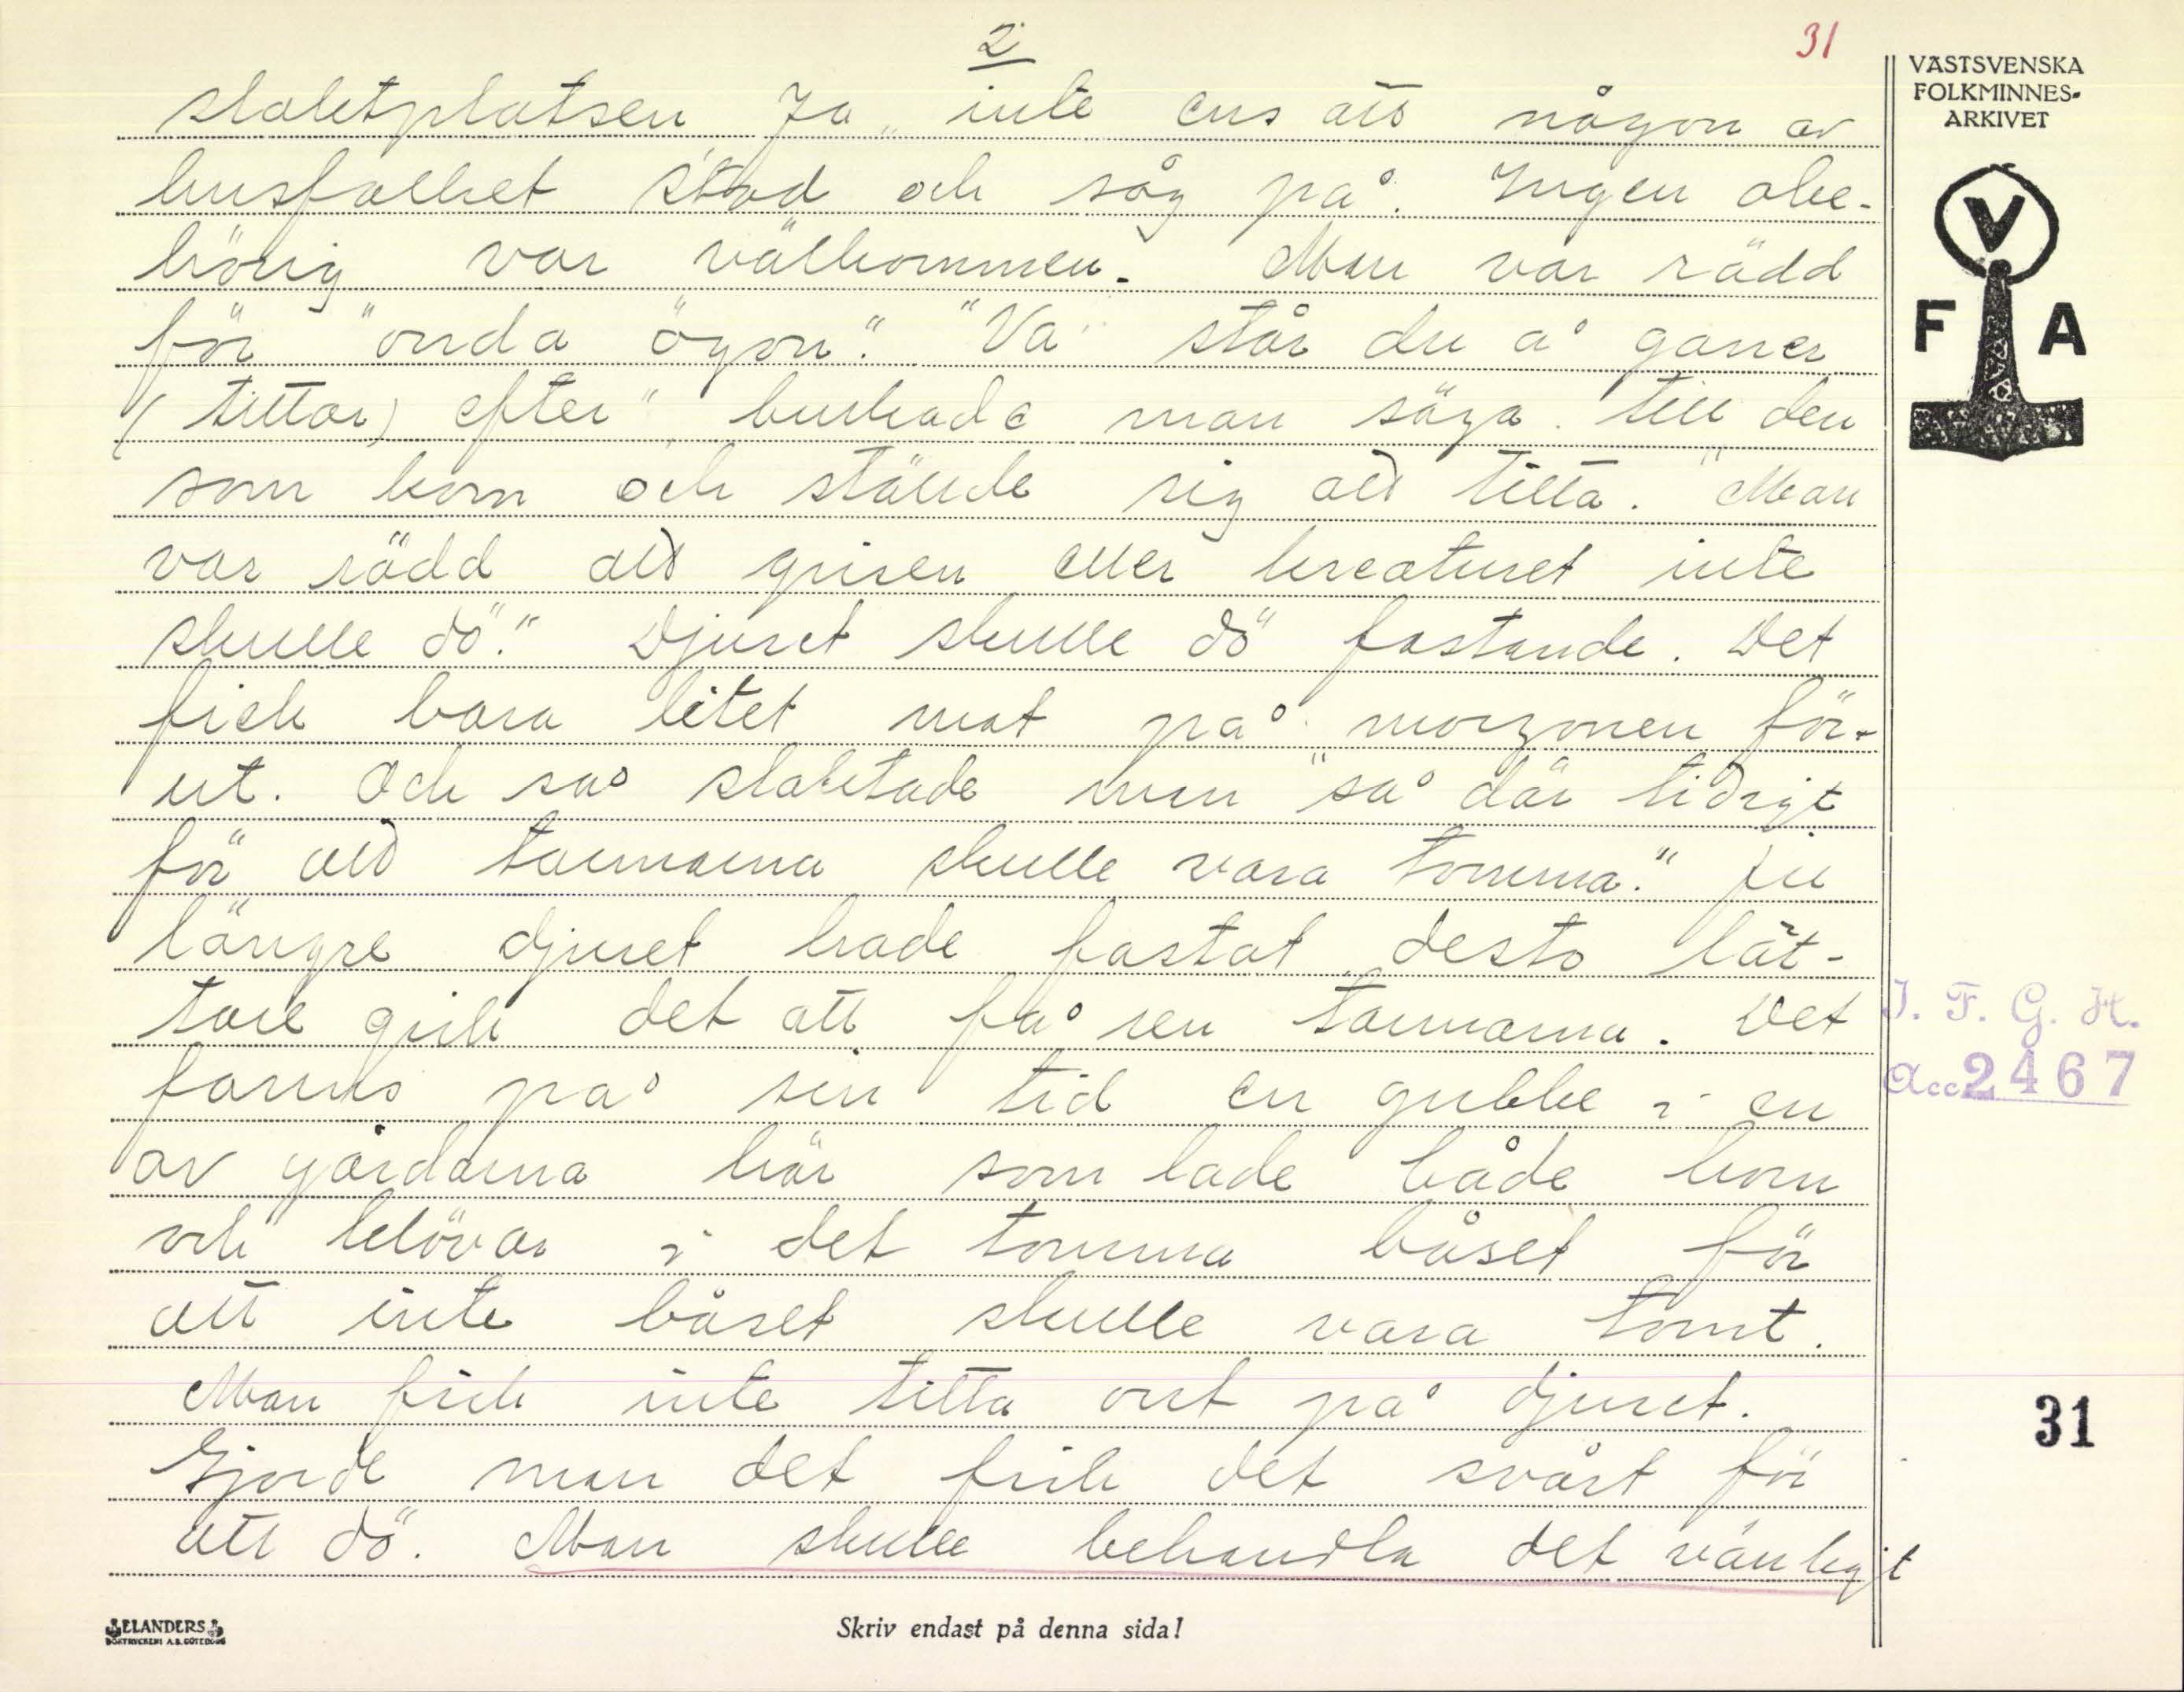 2
31
slaktplatsen Ja, inte ens att någon av
husfolket stod och såg på. Ingen obe-
hörig var välkommen. Man var rädd
för "onda ögon." "Va står du å ganer
(tittar) efter" brukade man säga till den
som kom och ställde sig att titta. "Man
var rädd att grisen eller kreaturet inte
skulle dö." Djuret skulle dö fastande. Det
fick bara litet mat på morgonen för-
ut. Och så slaktade man "så där tidigt
för att tarmarna skulle vara tomma." Ju
längre djuret hade fastat desto lät-
tare gick det att få ren tarmarna. Det
fanns på sin tid en gubbe i en
av gårdarna här som lade både horn
och klövar i det tomma båset för
att inte båset skulle vara tomt.
Man fick inte titta ont på djuret.
Gjorde man det fick det svårt för
att dö. Man skulle behandla det vänligt
VÄSTSVENSKA
FOLKMINNES-
ARKIVET
V
F A
I. F. G. H.
Acc 2467
31
ELANDERS
BOKTRYCKERI A.B. GÖTEBORG
Skriv endast på denna sida!